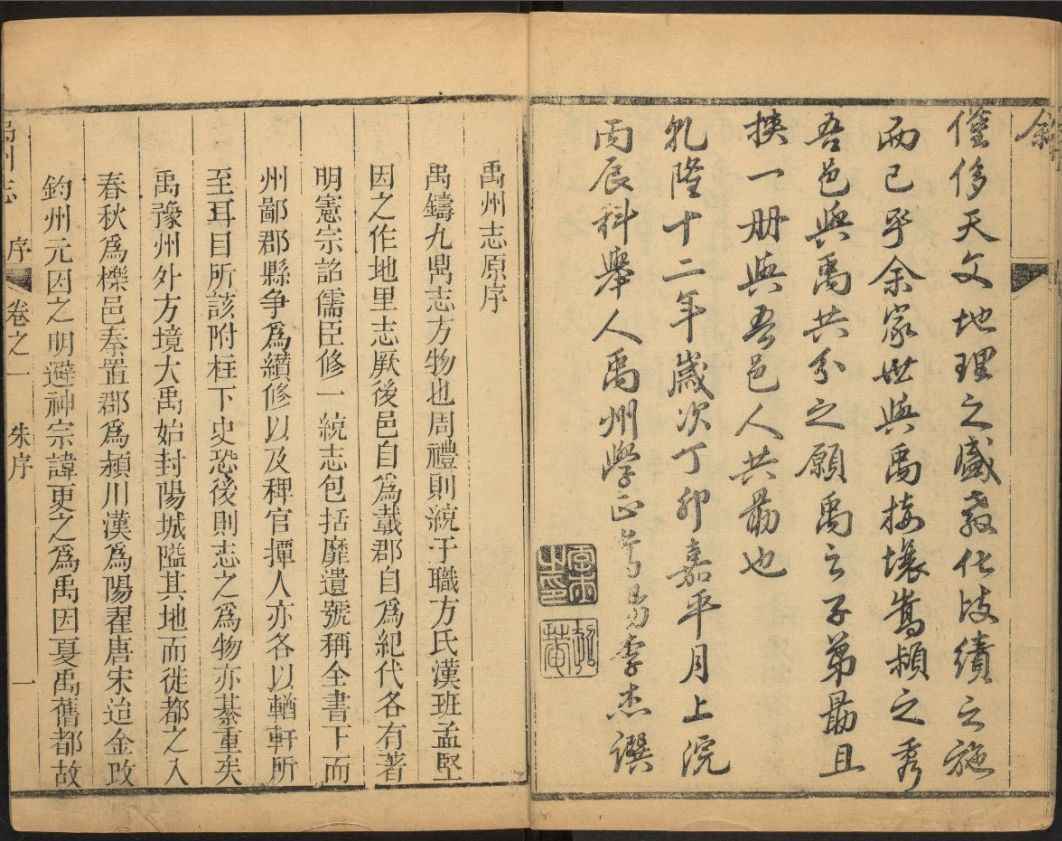 叙
僅侈天文地理之盛教化政績之施
而已乎余家世與禹接壤嵩潁之秀
吾邑與禹共分之願禹之子弟勗且
挾一册與吾邑人共勗也
乾隆十二年歲次丁卯嘉平月上浣
丙辰科舉人禹州學正李杰譔
禹州志原序
禹鑄九鼎志方物也周禮則統于職方氏漢班孟堅
因之作地里志厥後邑自爲載郡自爲紀代各有著
明憲宗詔儒臣修一統志包括靡遺號稱全書下而
州鄙郡縣争爲纘修以及稗官撢人亦各以輶軒所
至耳目所該附柱下史恐後則志之爲物亦綦重矣
禹豫州外方境大禹始封陽城隘其地而徙都之入
春秋爲櫟邑秦置郡爲潁川漢爲陽翟唐宋迨金改
鈞州元因之明避神宗諱更之爲禹因夏禹舊都故
禹州志 序 卷之一 朱序 一